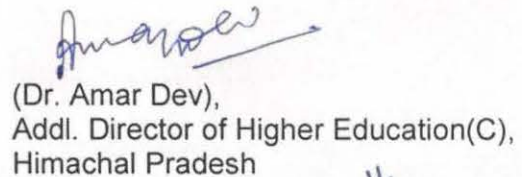 (Dr. Amar Dev),
Addl. Director of Higher Education(C),
Himachal Pradesh